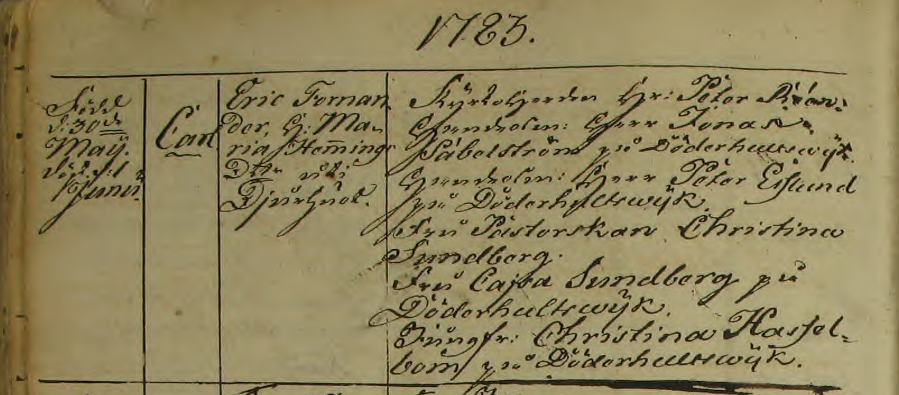 1783.
Född
d: 30de
Maij.
döpt 1
Junii.
Carl
Eric Fornan
der, H: Ma-
ria Heming
Dttr uti
Djurhult.
Kyrkoherden Hr: Petor
Handelsm: Herr Jonas
Sabelström på Döderhultswijk.
Handelsm: Herr Petor Eslund
på Döderhultswijk
Fru Pastorskan Christina
Sundberg.
Fru Cajsa Sundberg på
Döderhultswijk.
Jungfr: Christina Hassel-
bom på Döderhultswijk.